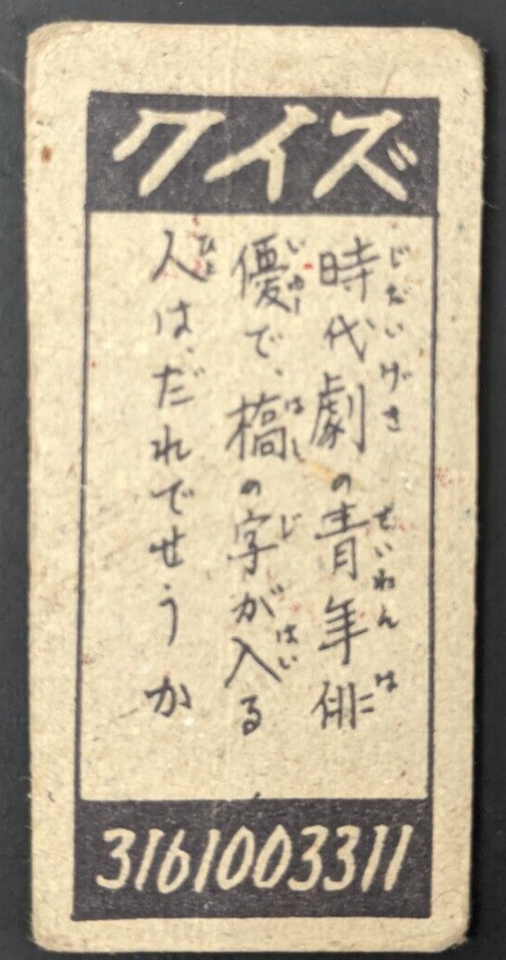 クイズ
時代劇の青年俳
優で、橋の字が入る
人は、だれでせうか
3161003311